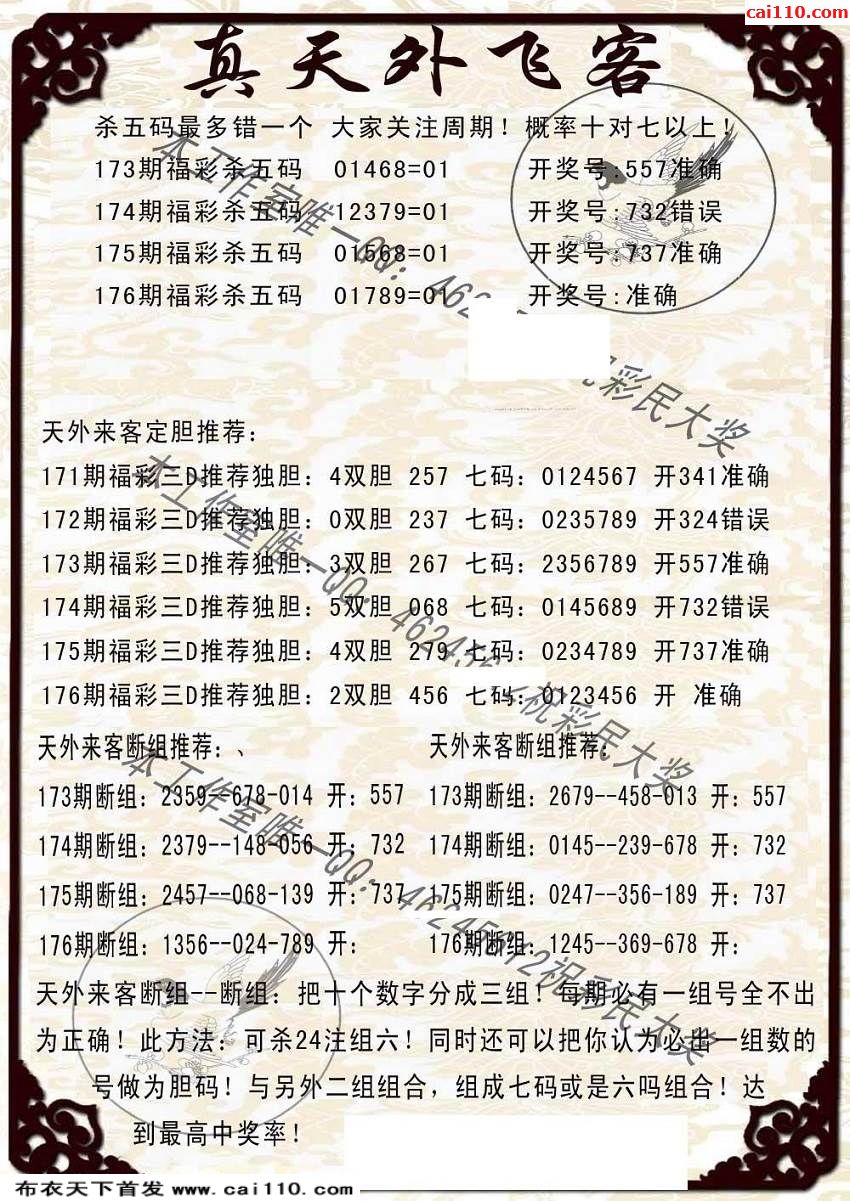 cai110.com
真天外飞客
杀五码最多错一个 大家关注周期！概率十对七以上！
173期福彩杀五码 01468=01 开奖号:557准确
174期福彩杀五码 12379=01 开奖号:732错误
175期福彩杀五码 01568=01 开奖号:737准确
176期福彩杀五码 01789=01 开奖号:准确
天外来客定胆推荐：
171期福彩三D推荐独胆：4双胆 257 七码：0124567 开341准确
172期福彩三D推荐独胆：0双胆 237 七码：0235789 开324错误
173期福彩三D推荐独胆：3双胆 267 七码：2356789 开557准确
174期福彩三D推荐独胆：5双胆 068 七码：0145689 开732错误
175期福彩三D推荐独胆：4双胆 279 七码：0234789 开737准确
176期福彩三D推荐独胆：2双胆 456 七码：0123456 开 准确
天外来客断组推荐：、 天外来客断组推荐：
173期断组：2359--678-014 开：557 173期断组：2679--458-013 开：557
174期断组：2379--148-056 开：732 174期断组：0145--239-678 开：732
175期断组：2457--068-139 开：737 175期断组：0247--356-189 开：737
176期断组：1356--024-789 开： 176期断组：1245--369-678 开：
天外来客断组--断组：把十个数字分成三组！每期必有一组号全不出
为正确！此方法：可杀24注组六！同时还可以把你认为必出一组数的
号做为胆码！与另外二组组合，组成七码或是六吗组合！达
到最高中奖率！
本工作室唯一QQ：462
祝彩民大奖
本工作室唯一QQ：462456 2祝彩民大奖
本工作室唯一QQ：46245612祝彩民大奖
布衣天下首发 www.cai110.com